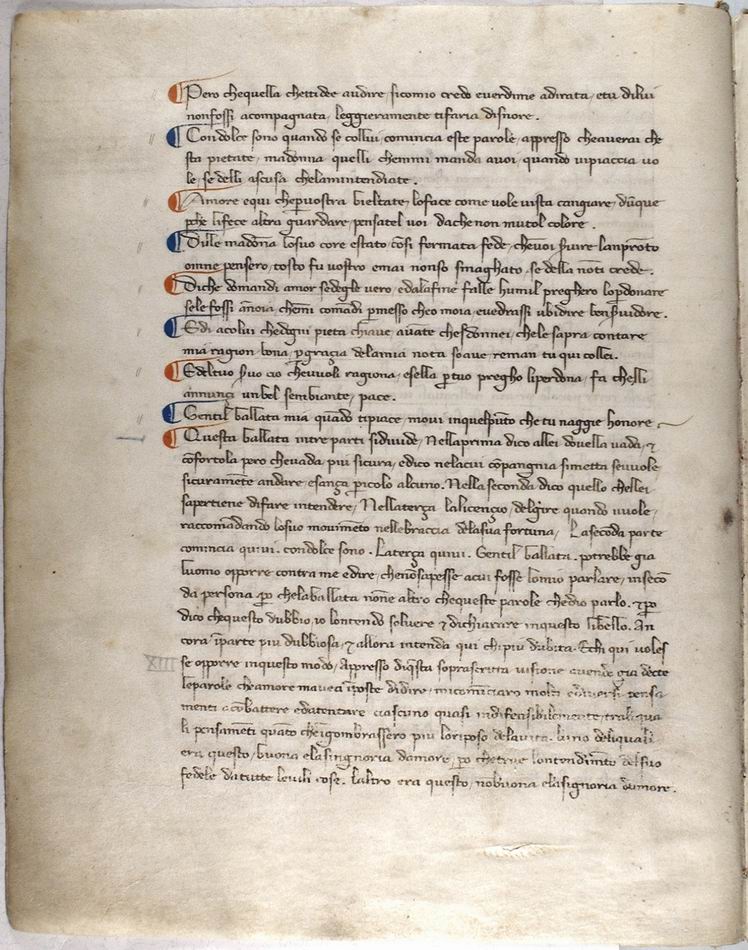 Pero chequella chettidee audire, sicomio credo euerdime adirata, etu dilui
nonfossi acompagnata, leggieramente tifaria disnore.
Condolce sono quando se collui, comincia este parole, appresso cheaverai che
sta pietate, madonna quelli chemmi manda avoi, quando vipiaccia vo
le, se delli ascusa chelamintendiate.
Amore equi cheꝑ vostra bieltate, loface come vole vista cangiare, dūque
ꝑche lifece altra guardare, pensatel voi dache non mutol colore.
Dille madōna losuo core estato, cōsi fermata fede, chevoi servire lanprōto
omne pensero, tosto fu vostro emai nonso smaghato, se della nōti crede.
Diche domandi amor sedeglie vero, edalafine falle humil preghero loꝑdonare
sele fossi ānoia, chemi comādi ꝑmesso cheo moia, euedrassi ubidire ben servidore.
Edi acolui chedogni pieta chiave, avāte chesdonnei, chele sapra contare
mia ragion bona, ꝑ graçia delamia nota soave reman tu qui collei.
Edeltuo servo cio chevvuoli ragiona, esella ꝑ tuo pregho liperdona, fa chelli
annunçi unbel sembiante, pace.
Gentil ballata mia quādo tipiace, movi inquelpūto che tu naggie honore
Questa ballata intre parti sidivide, Nellaprima dico allei dovella vada, ⁊
cōfortola pero chevada piu sicura, edico nelacui cōpangnia simetta sevuole
sicuramēte andare, esança ꝑicolo alcuno. Nella seconda dico quello chellei
sapertiene difare intendere, Nellaterça lalicençio, delgire quando vuole,
raccomādando losuo movimēto nellebraccia delasua fortuna, Laseconda parte
comincia quivi. condolce sono. Laterça quivi. Gentil ballata. potrebbe gia
luomo opporre contra me edire, chenōsapesse acui fosse lomio parlare, insecō
da persona ꝑo chelaballata nōne altro chequeste parole chedio parlo. ⁊ ꝑo
dico chequesto dubbio, io lontendo solvere ⁊ dichiarare inquesto libello. An
cora īparte piu dubbiosa, ⁊ allora intenda qui chi piu dubita. Echi qui voles
se opporre inquesto modo, Appresso diq̄sta soprascritta visione avendo gia decte
leparole cheamore mavea īposte didire, micomīciaro molti ediversi pensa
menti acōbattere edatentare ciascuno quasi indifensibilemente, traliqua
li pensamēti quatro cheīgombrassero piu loriposo delavita. luno deliquali
era questo, buona elasingnoria damore, ꝑo chetrae lontendimēto delsuo
fedele datutte levili cose. laltro era questo, nōbuona elasignoria damore.
XIII